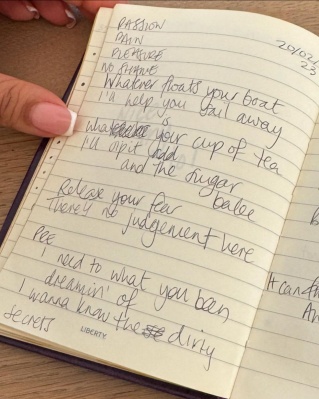 PASSION
PAIN
PLEASURE
NO SHAME
20/02/
23
Whatever floats your boat
I'll help you sail away
what is your cup of tea
I'll sip it
and the sugar
Release your fear babe
There'll no judgement here
PRE
I need to what you been
dreamin' of
I wanna know the dirty
secrets
LIBERTY
It can